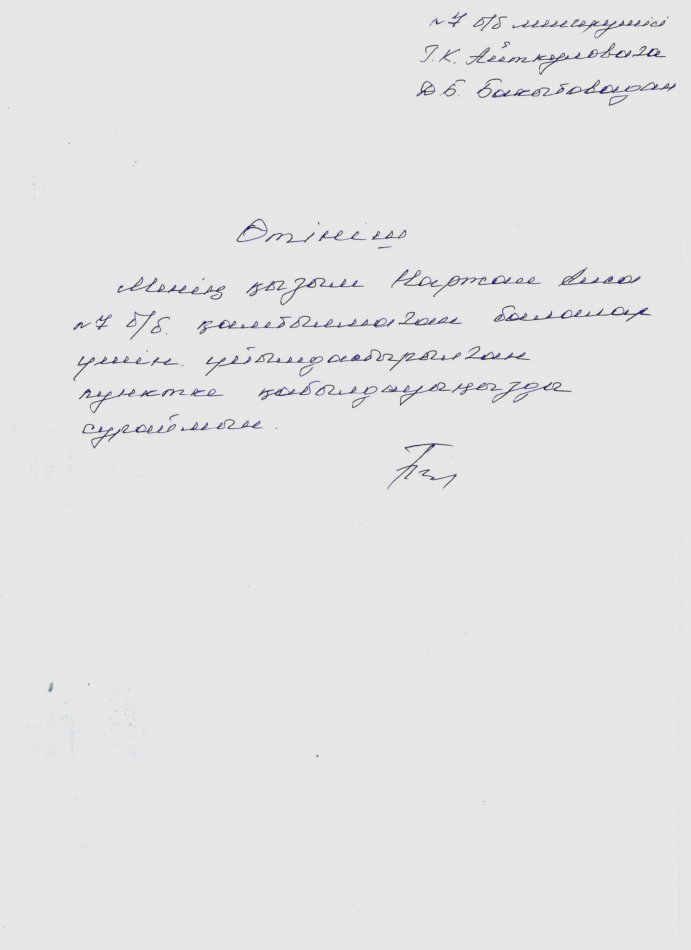 №7 б/б меңгерушісі
Г.К. Айткуловаға
Д.Б. Бакытовадан
Өтініш
Менің қызым Наржан Аиса
№7 б/б. қамтылмаған балалар
үшін ұйымдастырылған
пунктке қабылдауыңызды
сұраймын.